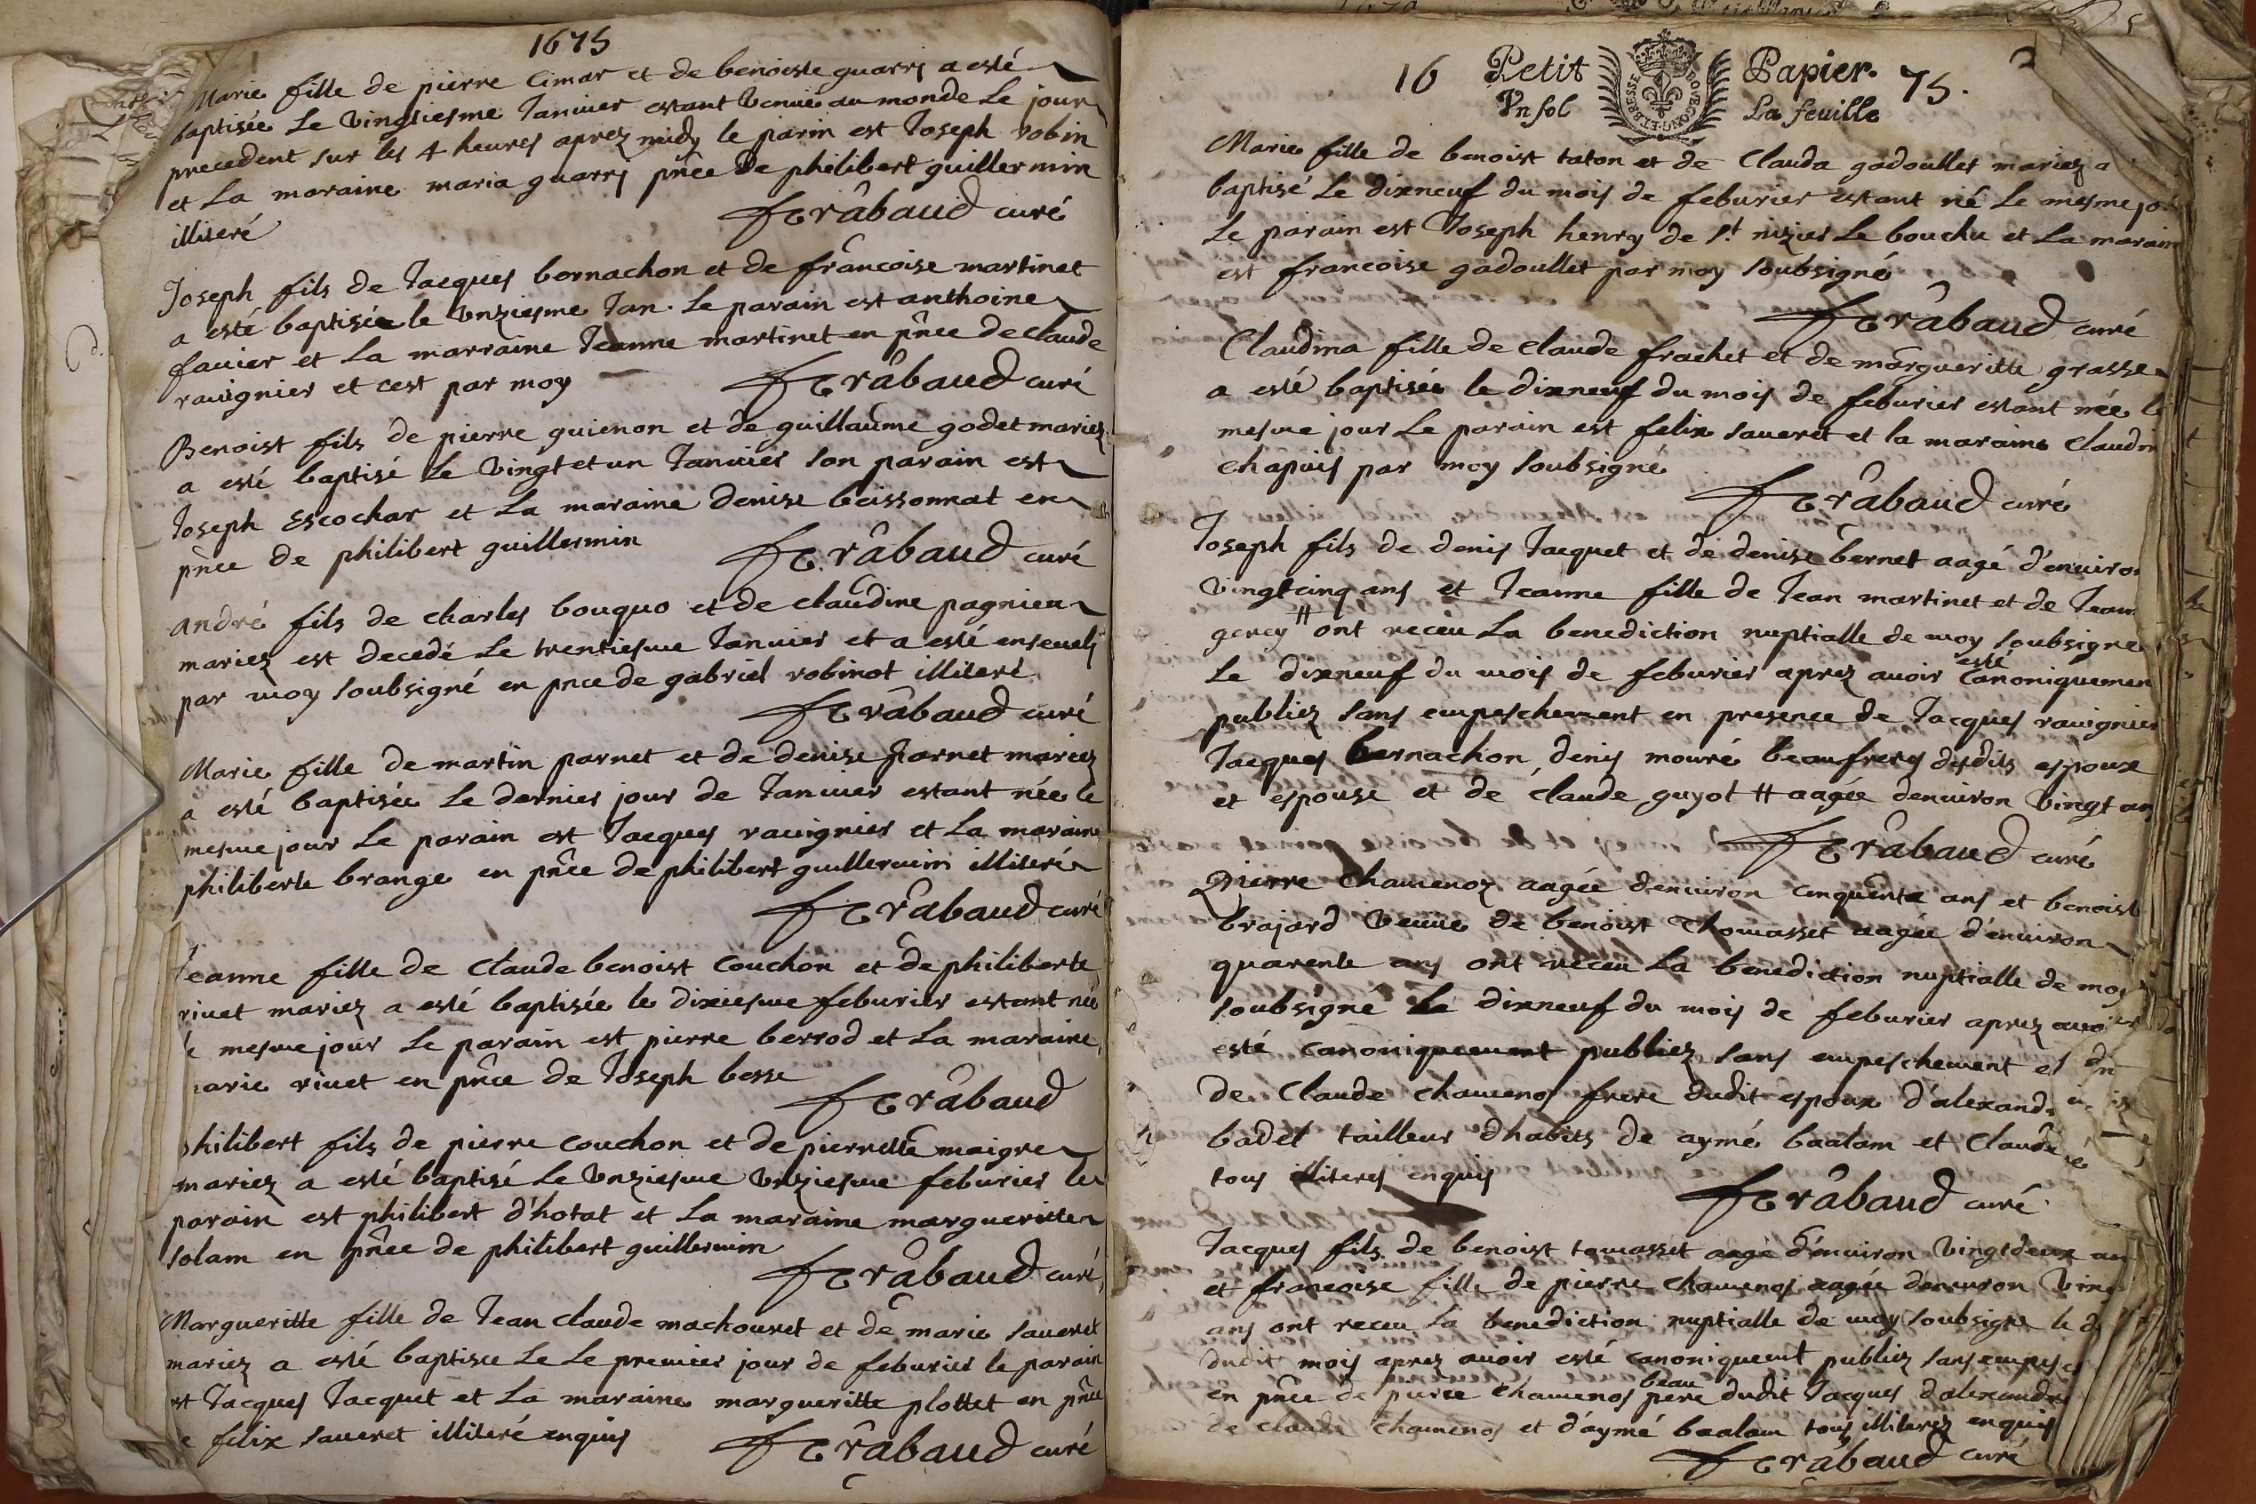 1675
Marie fille de pierre Cimar et de benoiste guarrj a esté
baptisée Le vingtiesme Janvier estant venuë au monde Le jour
precedent sur les 4 heures aprez midy le parin est Joseph robin
et La maraine maria guarrj pñce de philibert guillermin
illiteré trâbaud curé
Joseph fils de Jacques bernachon et de francoise martinet
a esté baptisée le vnziesme Jan. Le parain est anthoine
fauier et La marraine Jeanne martinet en pñce de claude
rauignier et cest par moy trâbaud curé
Benoist fils de pierre guienon et de guillaume godet mariez
a esté baptisé Le vingt et un Januier son parain est
Joseph Escochar et La maraine denise boissonnat en
pñce de philibert guillermin trâbaud curé
andré fils de charles bouquo et de claudine pagnieu
mariez est decedé Le trentiesme Januier et a esté enseuelj
par moy soubsigné en pnce de gabriel robinot illiteré
trâbaud curé
Marie fille de martin parnet et de denise parnet mariez
a esté baptisée Le dernier jour de Januier estant née le
mesme jour Le parain est Jacques rauignier et La maraine
philiberte brange en pñce de philibert guillermin illiteré
trâbaud curé
Jeanne fille de Claude benoist Couchon et de philiberte
riuet mariez a esté baptisée le dixiesme feburier estant née
mesme jour Le parain est pierre berrod et La maraine
marie riuet en pñce de Joseph besse
trâbaud
philibert fils de pierre couchon et de pierrette maigre
mariez a esté baptisé Le vnziesme vnziesme feburier le
parain est philibert d'hotat et La maraine margueritte
solam en pñce de philibert guillermin
trâbaud curé
Margueritte fille de Jean claude machouret et de marie saueret
mariez a esté baptisee Le Le premier jour de feburier le parain
est Jacques Jacquet et La maraine margueritte plottet en pñce
felix saueret illiteré enquis trâbaud curé
16 Petit Papier. 75.
Vn sol La feuille
BRESSE
Marie fille de benoist taton et de Clauda gadoullet mariez a
baptisé Le dixneuf du mois de feburier estant né Le mesme
Le parain est Joseph henry de St. nizier Le bouchu et La maraine
est francoise gadoullet par moy soubsigné
trâbaud curé
Claudina fille de claude frachet et de margueritte grasse
a esté baptisée le dixneuf du mois de feburier estant née le
mesme jour Le parain est felix saueret et la maraine claudin
chapuis par moy soubsigné
trâbaud curé
Joseph fils de denis Jacquet et de denise bernet aagé d'enuiron
vingtcinq ans et Jeanne fille de Jean martinet et de Jean
gerey # ont receu La benediction nuptialle de moy soubsigné
Le dixneuf du mois de feburier aprez auoir esté canoniquemen
publiez sans empeschement en presence de Jacques rauignier
Jacques bernachon, denis mouré beaufrers desdits espoux
et espouse et de claude guyot # aagée denuiron vingt ans
trâbaud curé
Pierre Chamenoz aagée denuiron cinquente ans et benoist
brajard veuue de benoist Thomasset aagée d'enuiron
quarente ans ont receu La benediction nuptialle de moy
soubsigné Le dixneuf du mois de feburier aprez auoir
esté canoniquement publiez sans empeschement et
de Claude chamenos frere dudit espoux d'alexand
badet tailleur dhabits de aymé baalam et Claude
tous illiteres enquis
trâbaud curé
Jacques fils de benoist tomasset aagé d'enuiron vingtdeux an
et francoise fille de pierre chamenos aagée denuiron vin
ans ont receu La benediction nuptialle de moy soubsigné le
dudit mois aprez auoir esté canoniquemt publiez sans
en pñce de pierre chamenos beau pere dudit Jacques d'alexandre
de claude chamenos et d'aymé baalam tous illiterez enquis
trâbaud curé